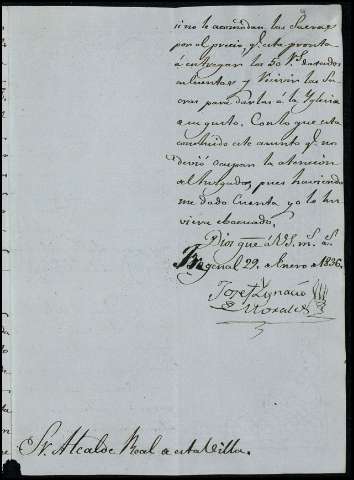 si no le acomodan las Sacras
por el precio, q.e esta pronto
á entregar las 50 r.s dados
en cuenta y Vivirin las Sa-
cras para darlas á la Yglesia
a su gusto. Con lo que esta
concluido este asunto q.e no
devió ocupar la atencion
del Juzgado, pues haviendo-
me dado Cuenta yo lo hu-
viera evacuado.
Dios gue á VS. m.s a.s
Fregenal 29. de Enero de 1836.
Jose Ygnacio
Morales
Sr. Alcalde Real de esta Villa.